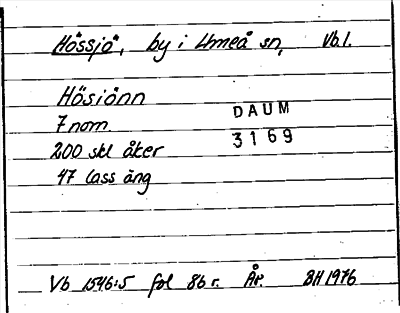 Hössjö, by i Umeå sn, Vb.l.
Hösiönn
DAUM
7 nom.
3169
200 skl åker
47 lass äng
Vb 1546:5 fol 86 r. År. BH 1976